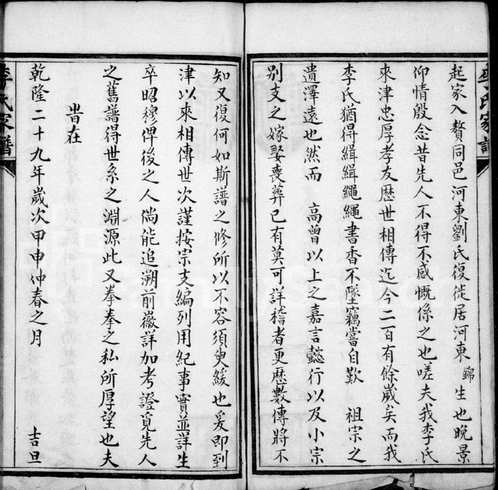 李氏家譜
起家入贅同邑河東劉氏復徙居河東錦生也晚景
仰情殷念昔先人不得不感慨係之也嗟夫我李氏
來津忠厚孝友歷世相傳迄今二百有餘歲矣而我
李氏猶得緝緝繩繩書香不墜竊嘗自歎 祖宗之
遺澤遠也然而 高曾以上之嘉言懿行以及小宗
別支之嫁娶喪葬已有莫可詳稽者更歷數傳將不
知又復何如斯譜之修所以不容須臾緩也爰即到
津以來相傳世次謹按宗支編列用紀事實並詳生
卒昭穆俾後之人倘能追溯前徽詳加考證覓先人
之舊譜得世系之淵源此又拳拳之私所厚望也夫
旹在
乾隆二十九年歲次甲申仲春之月 吉旦
李氏家譜